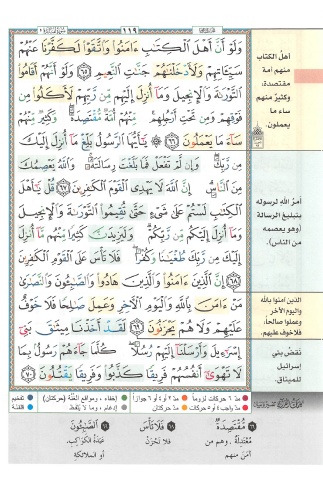 ١١٩
وَلَوْ أَنَّ أَهْلَ الْكِتَٰبِ ءَامَنُوا۟ وَاتَّقَوْا۟ لَكَفَّرْنَا عَنْهُمْ
سَيِّـَٔاتِهِمْ وَلَأَدْخَلْنَٰهُمْ جَنَّٰتِ النَّعِيمِ ٦٥ وَلَوْ أَنَّهُمْ أَقَامُوا۟
التَّوْرَىٰةَ وَالْإِنجِيلَ وَمَآ أُنزِلَ إِلَيْهِم مِّن رَّبِّهِمْ لَأَكَلُوا۟ مِن
فَوْقِهِمْ وَمِن تَحْتِ أَرْجُلِهِم مِّنْهُمْ أُمَّةٌ مُّقْتَصِدَةٌ وَكَثِيرٌ مِّنْهُمْ
سَآءَ مَا يَعْمَلُونَ ٦٦ يَٰٓأَيُّهَا الرَّسُولُ بَلِّغْ مَآ أُنزِلَ إِلَيْكَ
مِن رَّبِّكَ وَإِن لَّمْ تَفْعَلْ فَمَا بَلَّغْتَ رِسَالَتَهُۥ وَاللَّهُ يَعْصِمُكَ
مِنَ النَّاسِ إِنَّ اللَّهَ لَا يَهْدِى الْقَوْمَ الْكَٰفِرِينَ ٦٧ قُلْ يَٰٓأَهْلَ
الْكِتَٰبِ لَسْتُمْ عَلَىٰ شَىْءٍ حَتَّىٰ تُقِيمُوا۟ التَّوْرَىٰةَ وَالْإِنجِيلَ
وَمَآ أُنزِلَ إِلَيْكُم مِّن رَّبِّكُمْ وَلَيَزِيدَنَّ كَثِيرًا مِّنْهُم مَّآ أُنزِلَ
إِلَيْكَ مِن رَّبِّكَ طُغْيَٰنًا وَكُفْرًا فَلَا تَأْسَ عَلَى الْقَوْمِ الْكَٰفِرِينَ
٦٨ إِنَّ الَّذِينَ ءَامَنُوا۟ وَالَّذِينَ هَادُوا۟ وَالصَّٰبِـُٔونَ وَالنَّصَٰرَىٰ
مَنْ ءَامَنَ بِاللَّهِ وَالْيَوْمِ الْءَاخِرِ وَعَمِلَ صَٰلِحًا فَلَا خَوْفٌ
عَلَيْهِمْ وَلَا هُمْ يَحْزَنُونَ ٦٩ لَقَدْ أَخَذْنَا مِيثَٰقَ بَنِىٓ
إِسْرَٰٓءِيلَ وَأَرْسَلْنَآ إِلَيْهِمْ رُسُلًا كُلَّمَا جَآءَهُمْ رَسُولٌۢ بِمَا
لَا تَهْوَىٰٓ أَنفُسُهُمْ فَرِيقًا كَذَّبُوا۟ وَفَرِيقًا يَقْتُلُونَ ٧٠
أهل الكتاب
منهم أمة
مقتصدة،
وكثير منهم
ساء ما
يعملون.
أمر الله لرسوله
بتبليغ الرسالة
(وهو يعصمه
من الناس)
الذين آمنوا بالله
واليوم الآخر
وعملوا صالحاً،
فلا خوف عليهم.
نقض بني
إسرائيل
للميثاق.
مد ٦ حركات لزوماً مد ٢ أو ٤ أو ٦ جوازاً إخفاء، ومواقع الغنة (حركتان) تفخيم
مد واجب ٤ أو ٥ حركات مد حركتان إدغام، وما لا يلفظ قلقلة
٦٦ مُقْتَصِدَةٌ
مُعْتَدِلَةٌ، وهم من
آمَنَ منهم
٦٨ فَلَا تَأْسَ
فلا تَحْزَنْ
٦٩ الصَّابِئُونَ
عَبَدَةُ الكَوَاكِبِ،
أو الملائكةِ